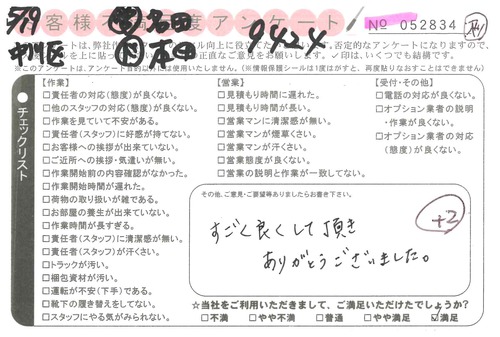 5/19
営 名田
客様 度アンケート
No 052834
9424
中川区
本田
※このアンケートは、アンケート目的以外には使用いたしません。(※情報保護シールは1度はがすと、再度貼りなおすことはできません)
チェックリスト
【作業】
□責任者の対応(態度)が良くない。
□他のスタッフの対応(態度)が良くない。
□作業を見ていて不安がある。
□責任者(スタッフ)に好感が持てない。
□お客様への挨拶が出来ていない。
□ご近所への挨拶・気遣いが無い。
□作業開始前の内容確認がなかった。
□作業開始時間が遅れた。
□荷物の取り扱いが雑である。
□お部屋の養生が出来ていない。
□作業時間が長すぎる。
□責任者(スタッフ)に清潔感が無い。
□責任者(スタッフ)が汗くさい。
□トラックが汚い。
□梱包資材が汚い。
□運転が不安(下手)である。
□靴下の履き替えをしてない。
□スタッフにやる気がみられない。
【営業】
□見積もり時間に遅れた。
□見積もり時間が長い。
□営業マンに清潔感が無い。
□営業マンが煙草くさい。
□営業マンが汗くさい。
□営業態度が良くない。
□営業の説明と作業が一致してない。
【受付・その他】
□電話の対応が良くない。
□オプション業者の説明・作業が良くない。
□オプション業者の対応(態度)が良くない。
その他、ご意見・ご要望等ありましたらお書き下さい。
+2
すごく良くして頂き
ありがとうございました。
☆当社をご利用いただきまして、ご満足いただけたでしょうか?
□不満 □やや不満 □普通 □やや満足 ☑満足